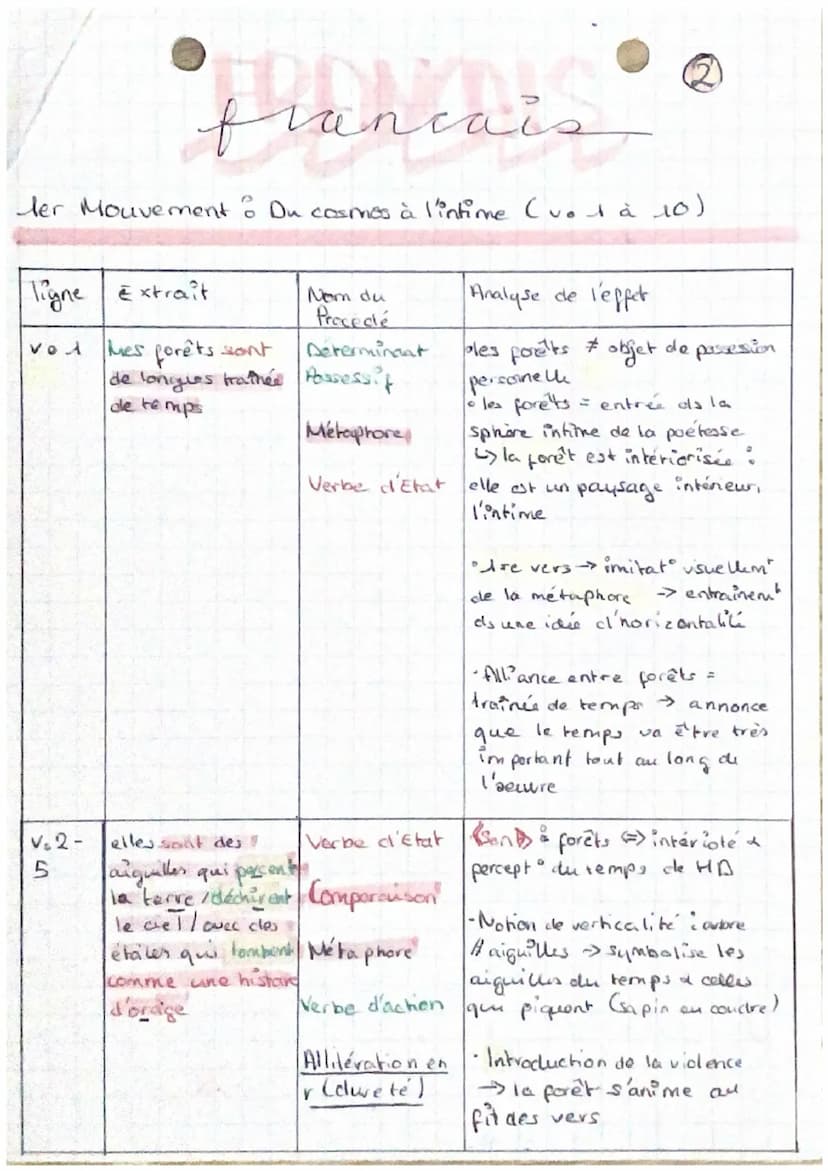 FRANÇAIS
francais
②
1er Mouvement : Du cosmos à l'intime (v. 1 à 10)
ligne
Extrait
Nom du
Procédé
Analyse de l'effet
v. 1
Mes forêts sont
de longues traînée
de temps
Déterminant
Possessif
Métaphore
Verbe d'Etat
• les forêts ≠ objet de possesion
personnelle
• les forêts = entrée ds la
sphère intime de la poétesse
↳ la forêt est intériorisée :
elle est un paysage intérieur,
l'intime
• 1re vers → imitat° visuellemt
de la métaphore → entrainent
ds une idée d'horizontalité
• Alliance entre forêts =
traînée de temps → annonce
que le temps va être très
important tout au long de
l'oeuvre
v. 2 -
5
elles sont des
aiguilles qui percent
la terre / déchirent
le ciel / avec des
étoiles qui tombent
comme une histoire
d'orage
Verbe d'Etat
Comparaison
Métaphore
Verbe d'action
Allitération en
r (dureté)
: forêts <=> intérioté &
percept° du temps de HD
- Notion de verticalité : arbre
// aiguilles → symbolise les
aiguilles du temps & celles
qui piquent (sapin ou coudre)
• Introduction de la violence
→ la forêt s'anime au
fil des vers